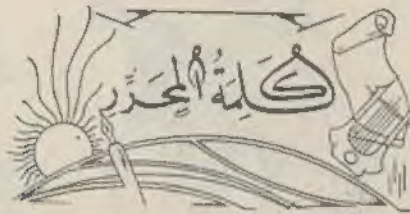 كَلِمَةُ المُحَرِّر